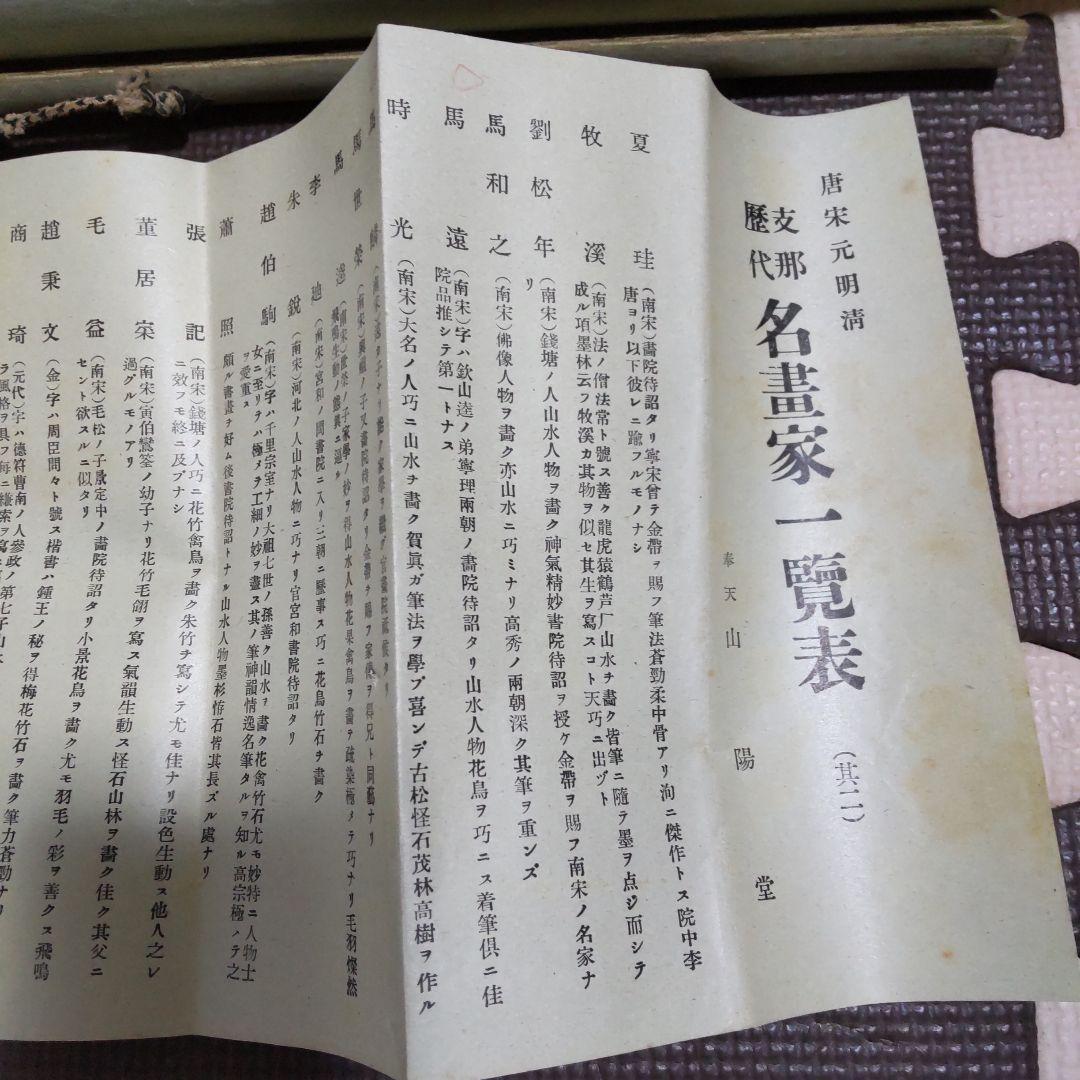 唐宋元明清
支那
歷代
名畫家一覽表
(其二)
奉天山陽堂
夏珪
(南宋)畵院待詔タリ寧宋曾テ金帶ヲ賜フ筆法蒼勁柔中骨アリ洵ニ傑作トス院中李
唐ヨリ以下彼レニ踰フルモノナシ
牧溪
(南宋)法ノ僧法常ト號ス善ク龍虎猿鶴芦厂山水チ畵ク皆筆ニ隨テ墨ヲ点ジ而シテ
成ル項墨林云フ牧溪カ其物ヲ似セ其生ヲ寫スコト天巧ニ出ヅト
劉松年
(南宋)錢塘ノ人山水人物ヲ畵ク神氣精妙書院待詔ヲ授ケ金帶ヲ賜フ南宋ノ名家ナ
リ
馬和之
(南宋)佛像人物ヲ畵ク亦山水ニ巧ミナリ高秀ノ兩朝深ク其筆ヲ重ンズ
馬遠
(南宋)字ハ欽山逵ノ弟寧理兩朝ノ畵院待詔タリ山水人物花鳥ヲ巧ニス着筆倶ニ佳
院品推シテ第一トナス
時光
(南宋)大名ノ人巧ニ山水チ畵ク賀眞ガ筆法ヲ學ブ喜ンデ古松怪石茂林高樹ヲ作ル
馬
馬世榮
馬逵
(南宋)世榮ノ子家學ノ妙ヲ得山水人物花果禽鳥ヲ畵ヲ疏染極メテ巧ナリ毛羽燦然
飛鳴生動ノ態眞ニ逼ル
李迪
(南宋)宮和ノ間書院ニ入リ三朝ニ歷事ス巧ニ花鳥竹石チ畵ク
朱銳
(南宋)河北ノ人山水人物ニ巧ナリ官宮和書院待詔タリ
趙伯駒
(南宋)字ハ千里宗室ナリ大祖七世ノ孫善ク山水ヲ畵ク花禽竹石尤モ妙特ニ人物士
女ニ至リテハ極メテ工細ノ妙ヲ盡ス其ノ筆神韻情逸名筆タルヲ知ル高宗極メテ之
ヲ愛重ス
蕭照
頗ル書畵ヲ好ム後書院待詔トナル山水人物墨杉恠石皆其長ズル處ナリ
張記
(南宋)錢塘ノ人巧ニ花竹禽鳥ヲ畵ク朱竹チ寫シテ尤モ佳ナリ設色生動ス他人之レ
ニ效フモ終ニ及ブナシ
董居宲
(南宋)寅伯鸞筌ノ幼子ナリ花竹毛翎ヲ寫ス氣韻生動ス怪石山林ヲ畵ク佳ク其父ニ
過グルモノアリ
毛益
(南宋)毛松ノ子㪫定中ノ畵院待詔タリ小景花鳥ヲ畵ク尤モ羽毛ノ彩ヲ善クス飛鳴
セント欲スルニ似タリ
趙秉文
(金)字ハ周臣間々ト號ス楷書ハ鍾王ノ秘ヲ得梅花竹石ヲ畵ク筆力蒼勁ナリ
商琦
(元代)字ハ德符曹南ノ人參政ノ第七子山水
ラ風格ヲ具フ每ニ縑索ヲ寫